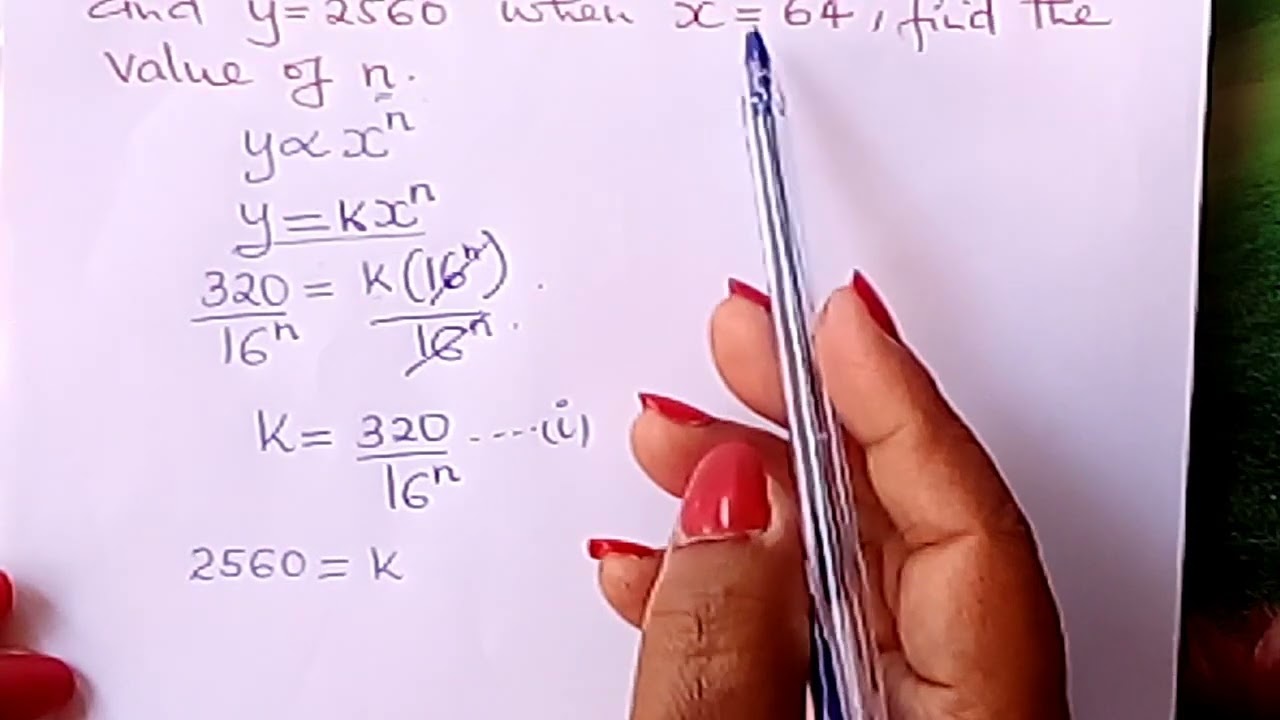 and y=2560 when x=64, find the
value of n.
y∝xⁿ
y=kxⁿ
320/16ⁿ = k(16ⁿ)/16ⁿ
k=320/16ⁿ ----(i)
2560=k